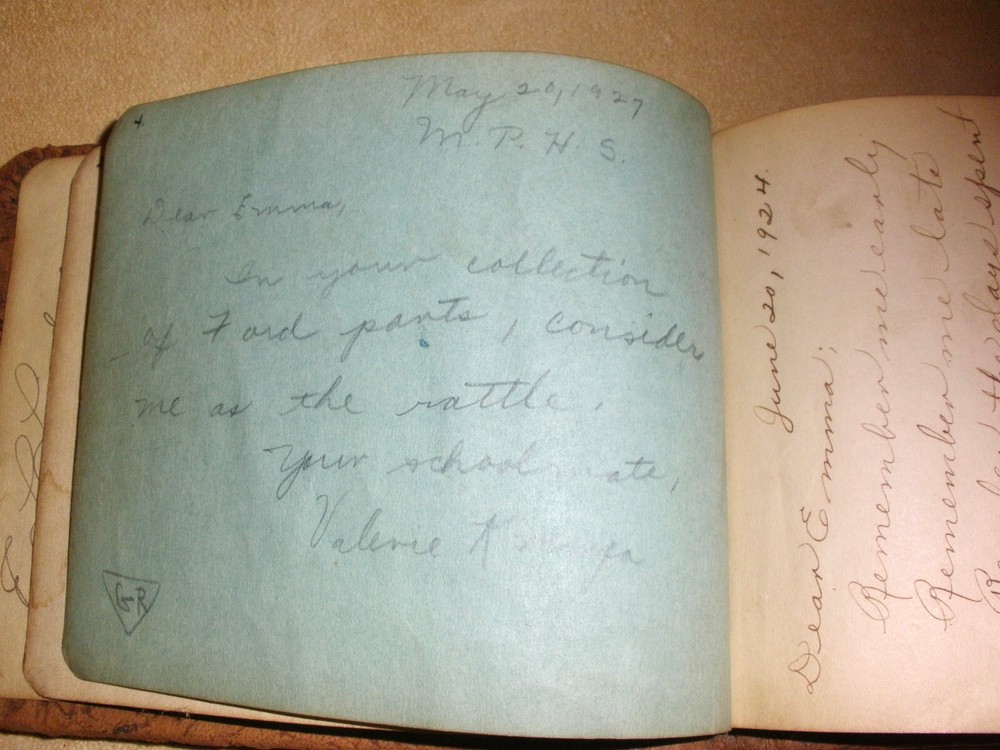 May 20, 1927
M. P. H. S.
Dear Emma,
In your collection
of Ford parts, consider
me as the rattle.
Your schoolmate,
Valerie
GR
June 20, 1924.
Dear Emma;
Remember me early
Remember me late
the days spent